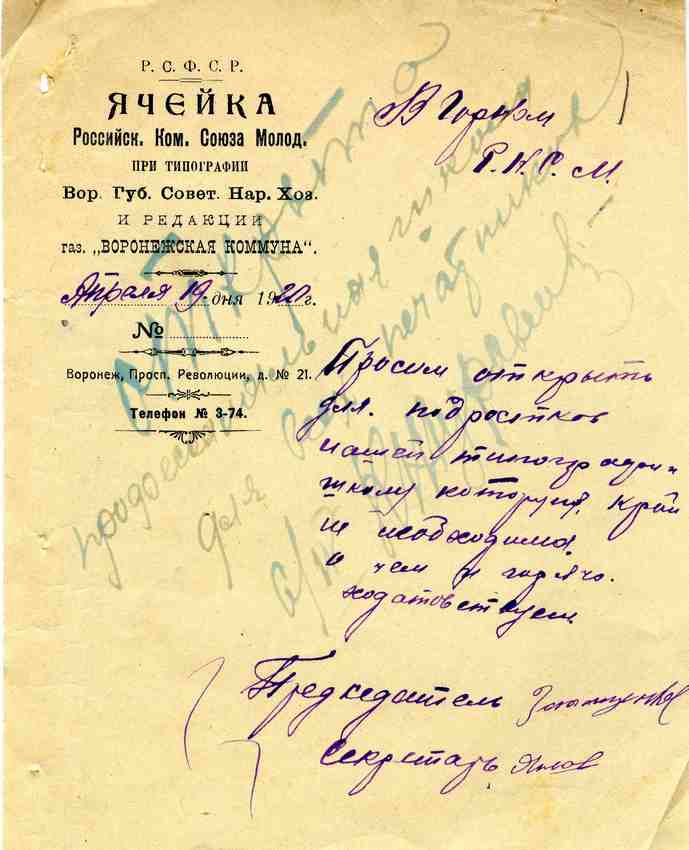 Р. С. Ф. С. Р.
ЯЧЕЙКА
Российск. Ком. Союза Молод.
ПРИ ТИПОГРАФИИ
Вор. Губ. Совет. Нар. Хоз.
И РЕДАКЦИИ
газ. „ВОРОНЕЖСКАЯ КОММУНА“.
Апреля 19 дня 1920 г.
№
Воронеж, Просп. Революции, д. № 21.
Телефон № 3-74.
В Горком
Р. К. С. М.
Просим открыть
для подростков
нашей типографии
школу которая край
не необходима,
о чем и горячо
ходатовствуем
Председатель
Секретарь
открыто
профессиональная школа
для
печатников